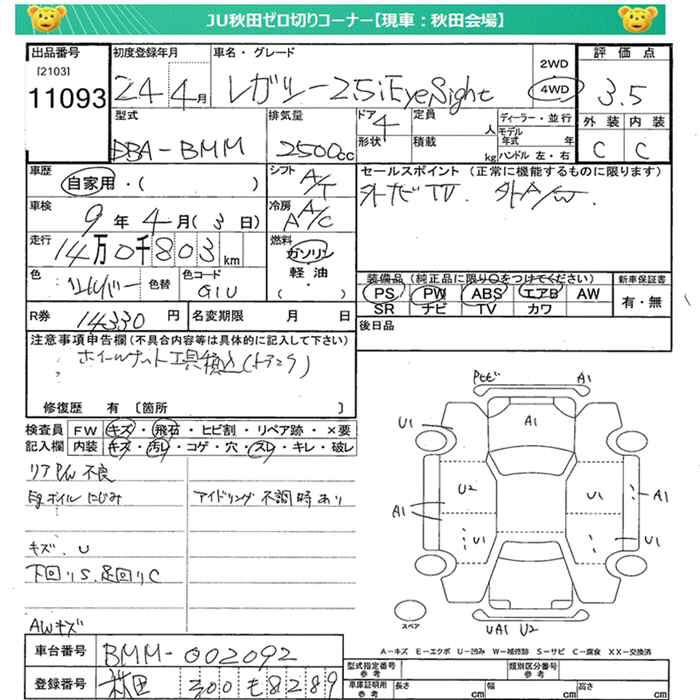 JU秋田ゼロ切りコーナー【現車：秋田会場】
出品番号 初度登録年月 車名・グレード 評価点
[2103]
11093 24 4月 レガシー 2.5i EyeSight 2WD 4WD 3.5
型式 排気量 ドア 定員 ディーラー・並行 外装 内装
DBA-BMM 2500cc 4 人 モデル年式 年 C C
形状 積載 kg ハンドル 左・右
車歴 シフト セールスポイント (正常に機能するものに限ります)
自家用・( ) A/T 外ナビTV. 外A/W.
車検 冷房
9年4月(3日) A A/C
走行 燃料
14万0千803km ガソリン
軽油・( )
色 色替 色コード 装備品 (純正品に限り○をつけてください) 新車保証書
シルバー G1U PS PW ABS エアB AW 有・無
SR ナビ TV カワ
R券 14330円 名変期限 月 日 後日品
注意事項申告欄(不具合内容等は具体的に記入して下さい)
ホイールナット工具積込(トランク)
修復歴 有 [箇所 ]
検査員記入欄 FW キズ・飛石・ヒビ割・リペア跡・×要
内装 キズ・汚レ・コゲ・穴・スレ・キレ・破レ
リアP/W不良
Egオイルにじみ アイドリング不調時あり
キズ.U
下回りS.足回りC
AWキズ
Pセビ A1
U1 A1
U2 U1 A1
A1 U1 U1
スペア UA1 U2
A－キズ E－エクボ U－凹み W－補修跡 S－サビ C－腐食 XX－交換済
車台番号 BMM-002092
型式指定番号 参考 類別区分番号 参考
登録番号 秋田 300 も 8289
車庫証明用 参考 長さ cm 幅 cm 高さ cm